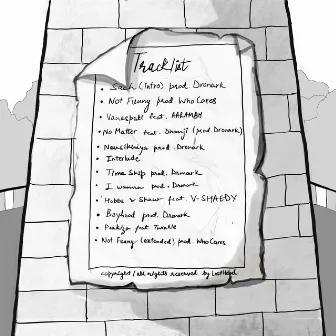 Tracklist
Sach (intro) prod. Dromark
Not Funny prod. Who Cares
Vanaspati feat. AARAMBH
No Matter feat. Dhanji (prod Dromark)
prod. Dromark
Interlude
Time Stop prod. Dromark
I wanna prod. Dromark
Hobbs n Shaw feat. V-SHAEDY
Boyhood prod. Dromark
feat. Twinkle
Not Funny (extended) prod. Who Cares
copyright / all rights reserved by